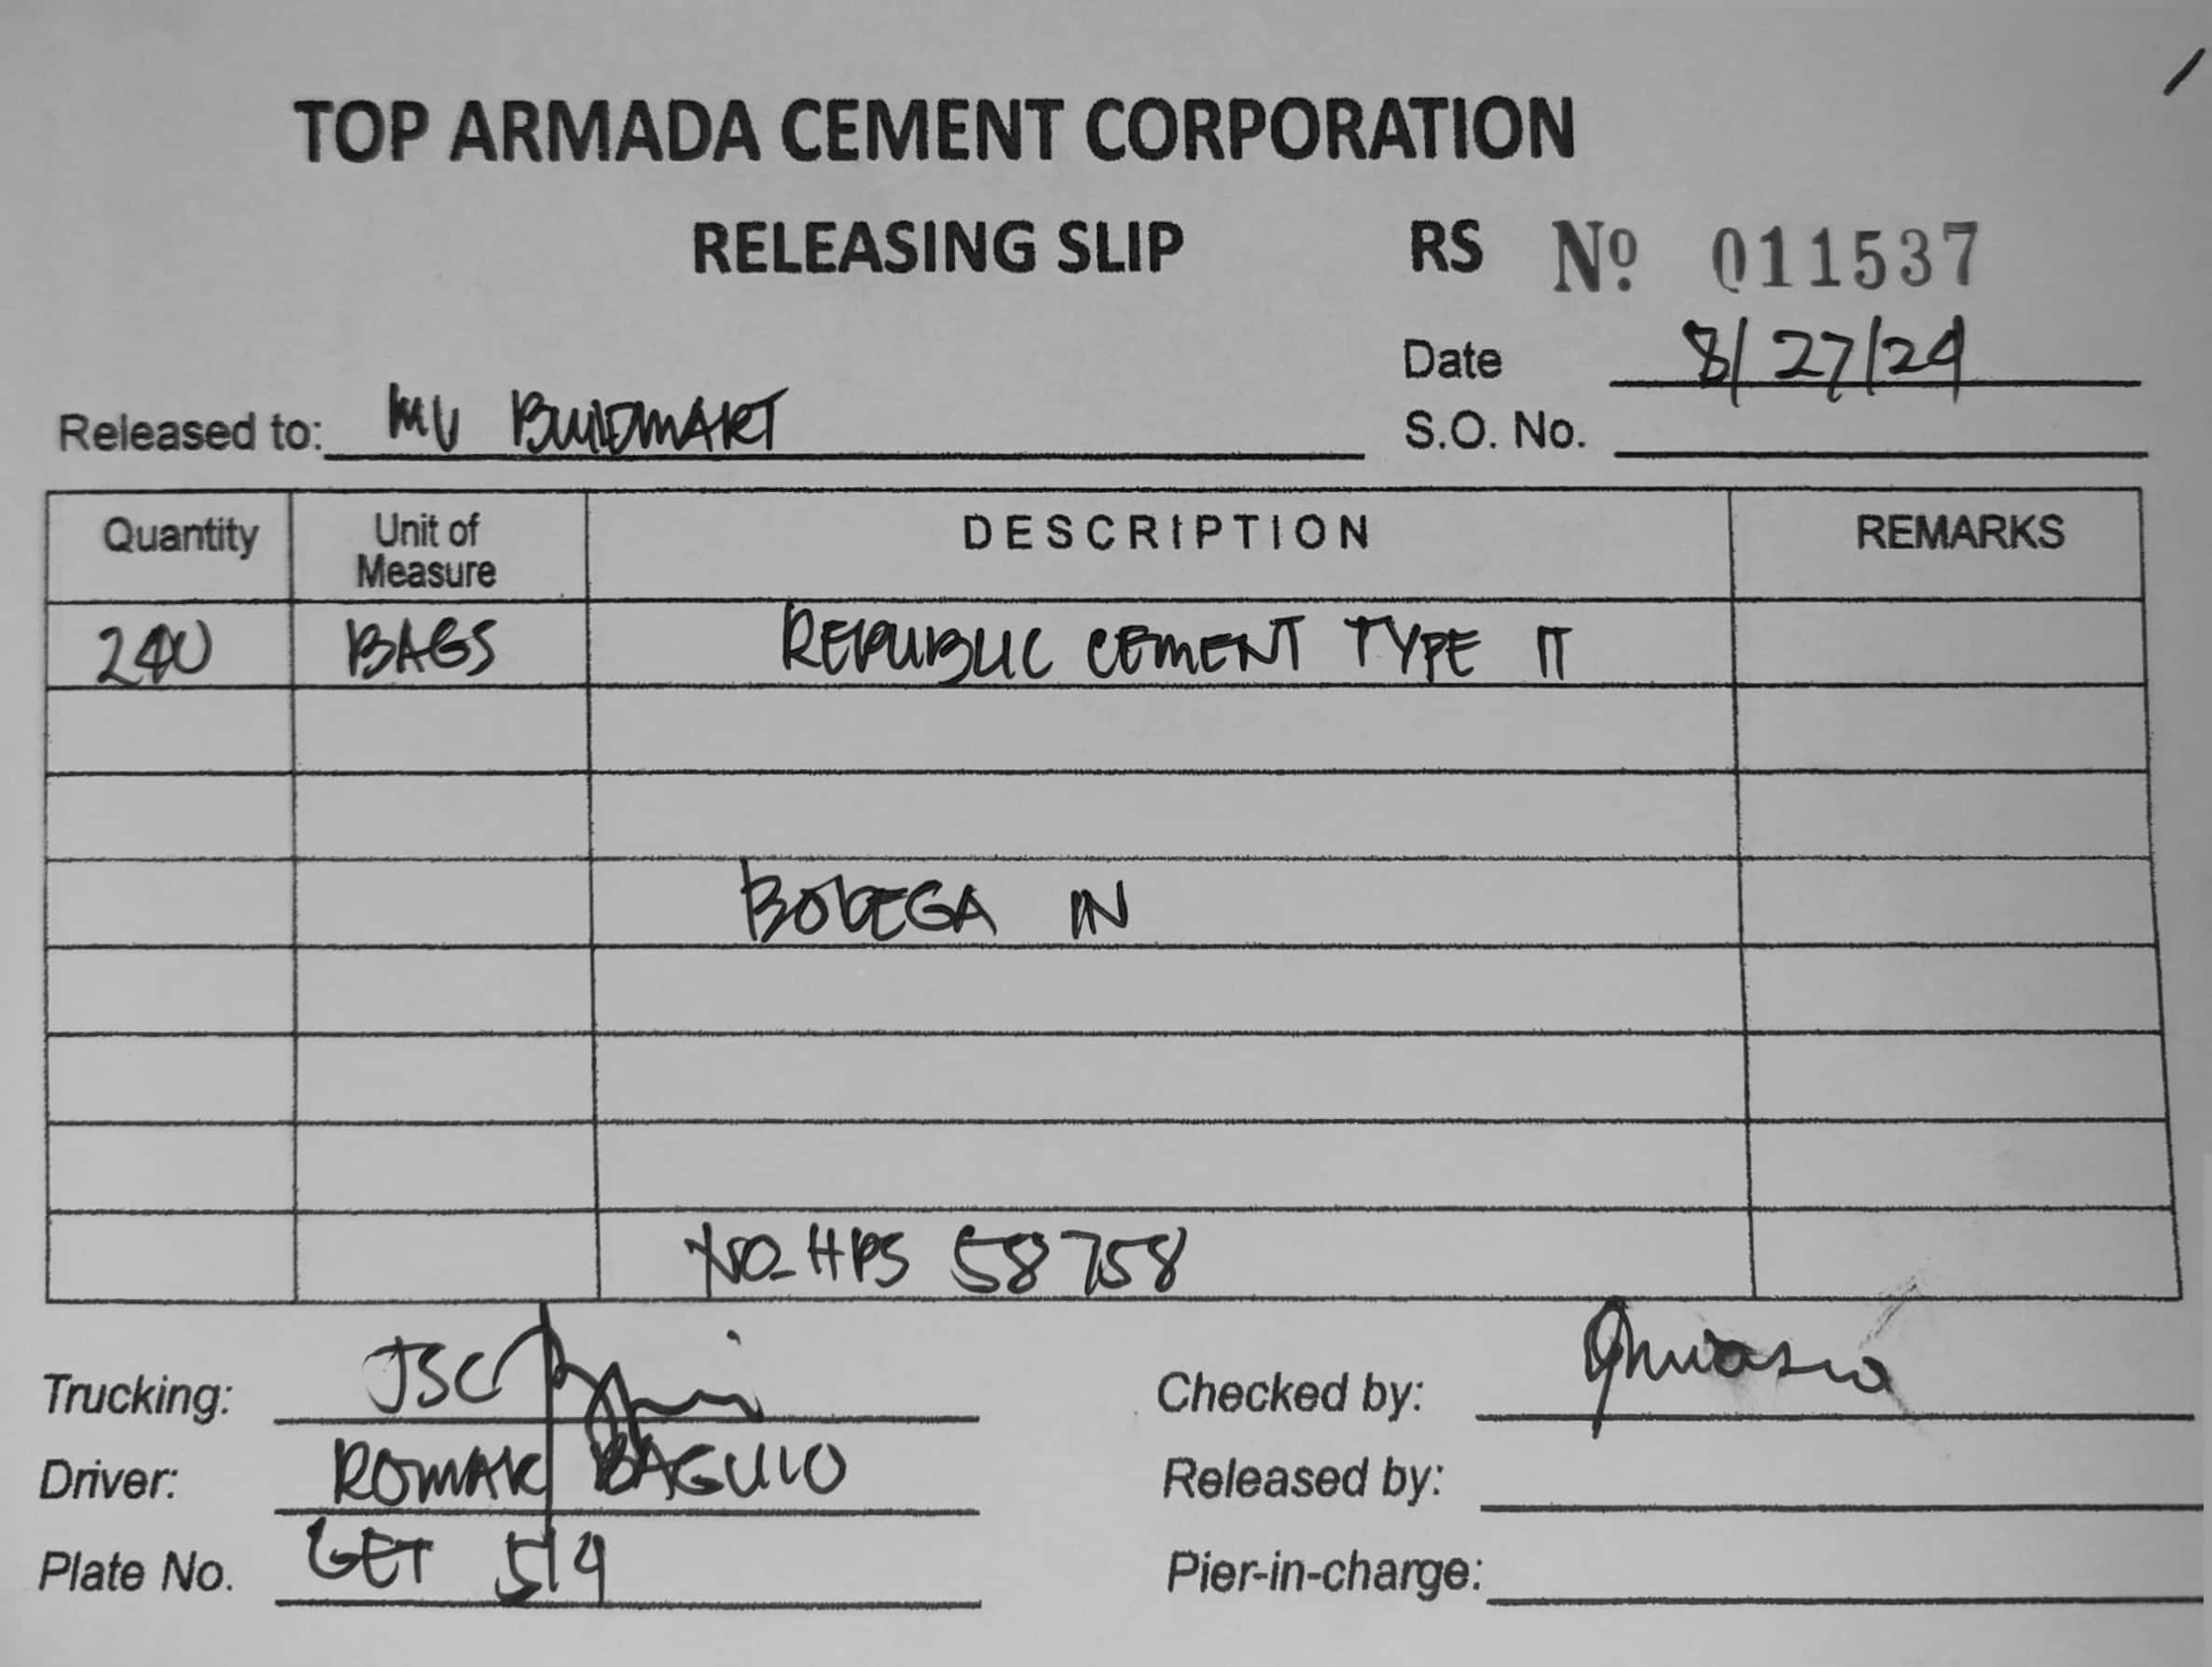 TOP ARMADA CEMENT CORPORATION
RELEASING SLIP RS Nº 011537
Date 8/27/24
Released to: MV BUILDMART S.O. No.
Quantity Unit of Measure DESCRIPTION REMARKS
240 BAGS REPUBLIC CEMENT TYPE IT
BODEGA IN
NO-HPS 58758
Trucking: JSC Checked by:
Driver: ROMAR BAGUIO Released by:
Plate No. GET 519 Pier-in-charge: